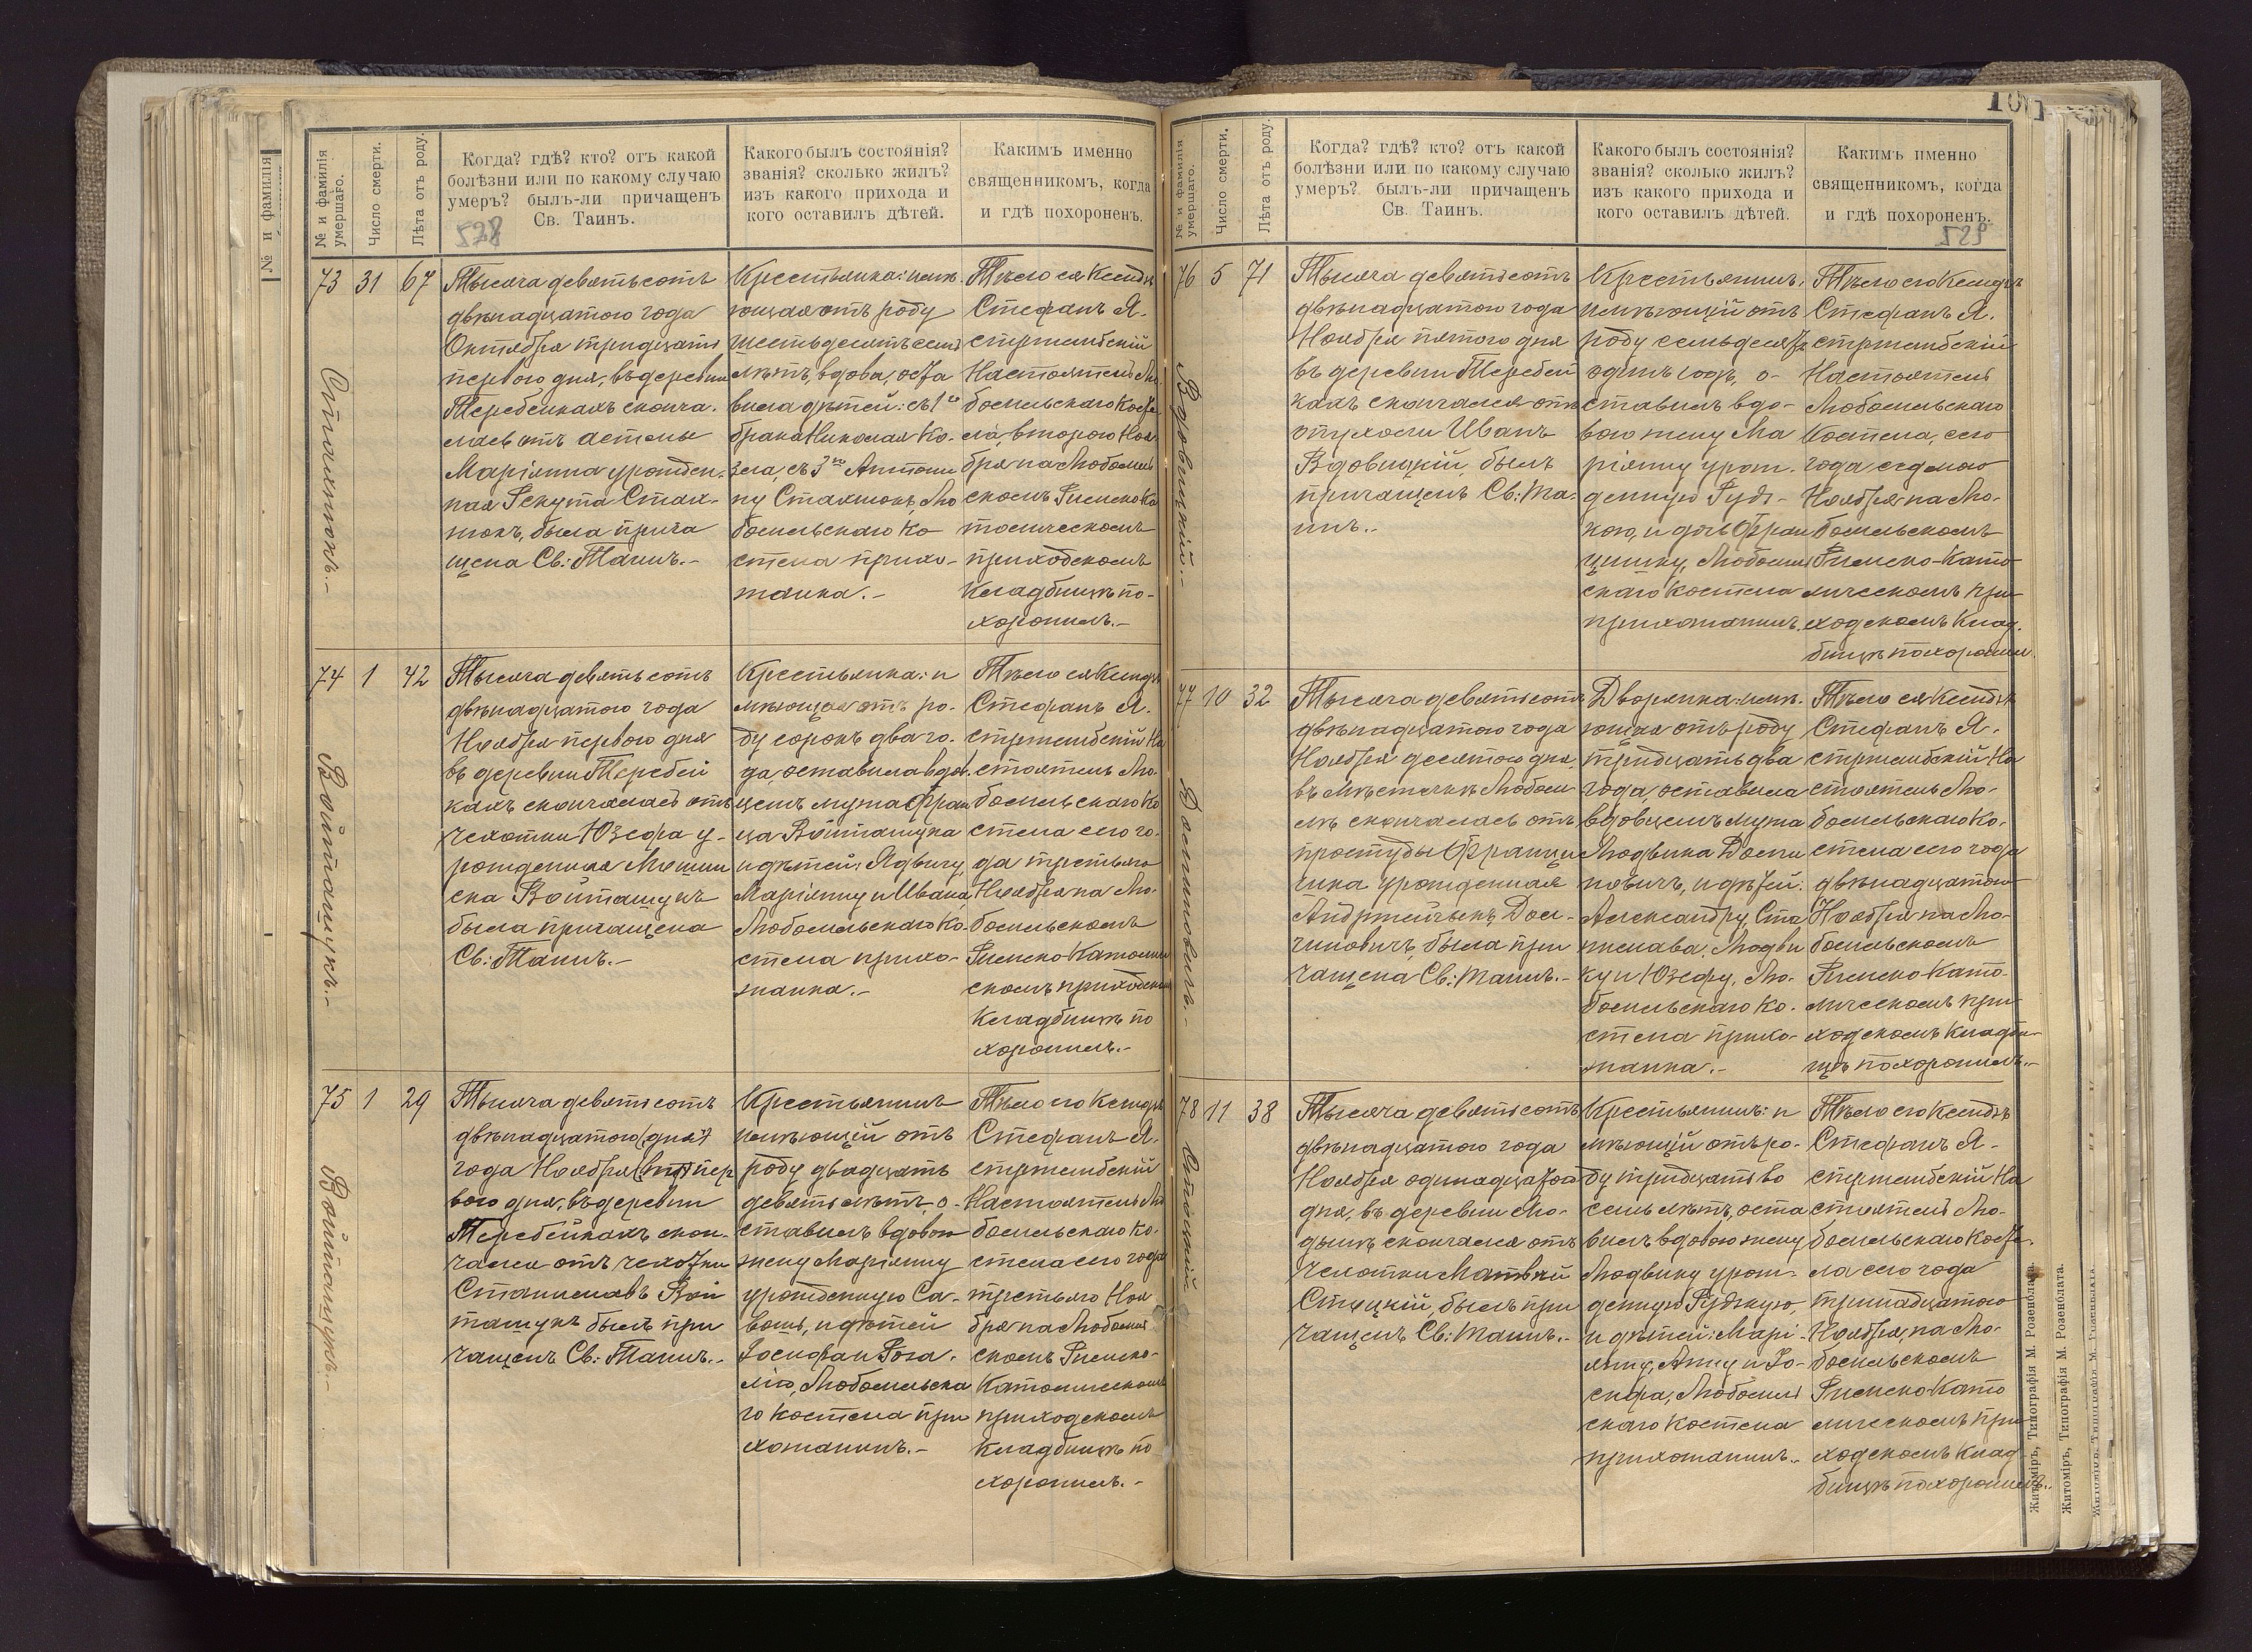 № и фамилія
№ и фамилія умершаго.
Число смерти.
Лѣта отъ роду.
Когда? гдѣ? кто? отъ какой
болѣзни или по какому случаю
умеръ? былъ-ли причащенъ
Св. Таинъ.
578
Какого былъ состоянія?
званія? сколько жилъ?
изъ какого прихода и
кого оставилъ дѣтей.
Какимъ именно
священникомъ, когда
и гдѣ похороненъ.
73
Стахнюкъ.-
31
67
Тысяча девятьсотъ
двѣнадцатого года
Октября тридцать
перваго дня, въ деревни
Теребейкахъ сконча.
лась отъ астмы
Маріянна урожден-
ная Секута Стах-
нюкъ, была прича
щена Св: Таинъ.-
Крестьянка: имѣ.
ющая отъ роду
шестьдесятъ семь
лѣтъ, вдова, оста
вила дѣтей: съ 1го
брака Николая Ко-
зела, съ 3го Антони
ну Стахнюкъ, Лю
бомльскаго Ко
стела прихо-
жанка.-
Тѣло ея Ксендзъ
Стефанъ Я-
стржембскій
Настоятель Лю.
бомльскаго Косте
ла, второго Ноя
бря на Любомль
скомъ Римско Ка
толическомъ
приходскомъ
Кладбищѣ по-
хоронилъ.-
74
Войташукъ.-
1
42
Тысяча девятьсотъ
двѣнадцатого года
Ноября перваго дня
въ деревни Теребей
кахъ скончалась отъ
чахотки Юзефа у-
рожденная
Войташукъ
была причащена
Св: Таинъ.-
Крестьянка: и
мѣющая отъ ро-
ду сорокъ два го-
да, оставила вдов.
цемъ мужа Фран
ца Войташука
и дѣтей: Ядвигу,
Маріянну и Ивана,
Любомльскаго Ко.
стела прихо-
жанка.-
Тѣло ея Ксендзъ
Стефанъ Я.
стржембскій На
стоятель Лю.
бомльскаго Ко
стела сего го-
да третьяго
Ноября на Лю.
бомльскомъ
Римско Католиче
скомъ приходскомъ
Кладбищѣ по
хоронилъ.-
75
Войташукъ.-
1
29
Тысяча девятьсотъ
двѣнадцатого (дня)
года Ноября пер
ваго дня, въ деревни
Теребейкахъ скон-
чался отъ чахотки
Станиславъ Вой
ташукъ былъ при
чащенъ Св: Таинъ.-
Крестьянинъ
имѣющій отъ
роду двадцать
девять лѣтъ, о-
ставилъ вдовою
жену Маріянну
урожденную Са-
вошъ, и дѣтей
Іосифа и Роза-
лію, Любомльска
го Костела при
хожанинъ.-
Тѣло его Ксендзъ
Стефанъ Я.
стржембскій
Настоятель Лю
бомльскаго Ко-
стела сего года
третьяго Ноя
бря на Любомль
скомъ Римско-
Католическомъ
приходскомъ
Кладбищѣ по
хоронилъ.-
107
№ и фамилія умершаго.
Число смерти.
Лѣта отъ роду.
Когда? гдѣ? кто? отъ какой
болѣзни или по какому случаю
умеръ? былъ-ли причащенъ
Св. Таинъ.
Какого былъ состоянія?
званія? сколько жилъ?
изъ какого прихода и
кого оставилъ дѣтей.
Какимъ именно
священникомъ, когда
и гдѣ похороненъ.
579
76
Вдовицкій.-
5
71
Тысяча девятьсотъ
двѣнадцатого года
Ноября пятого дня
въ деревни Теребей
кахъ скончался отъ
опухоли Иванъ
Вдовицкій, былъ
причащенъ Св: Та-
инъ.-
Крестьянинъ.
имѣющій отъ
роду семьдесятъ
одинъ годъ, о-
ставилъ вдо-
вою жену Ма
ріянну урож-
денную Рудз-
кою, и дочь Фран
цишку, Любомль
скаго Костела
прихожанинъ.
Тѣло его Ксендзъ
Стефанъ Я.
стржембскій
Настоятель
Любомльскаго
Костела, сего
года седмого
Ноября на Лю-
бомльскомъ
Римско-Като
лическомъ при
ходскомъ Клад.
бищѣ похоронилъ.
77
10
32
Тысяча девятьсотъ
двѣнадцатого года
Ноября десятого дня,
въ Мѣстечкѣ Любом
лѣ скончалась отъ
простуды Францы
шка урожденная
Андржейчукъ
была при
чащена Св: Таинъ.-
Дворянка: имѣ.
ющая отъ роду
тридцать два
года, оставила
вдовцемъ мужа
Людвика
и дѣтей:
Александру, Ста
нислава, Людви
ку и Юзефу, Лю.
бомльскаго Ко.
стела прихо-
жанка.-
Тѣло ея Ксендзъ
Стефанъ Я.
стржембскій На
стоятель Лю-
бомльскаго Ко.
стела сего года
двѣнадцатого
Ноября на Лю-
бомльскомъ
Римско Като-
лическомъ при
ходскомъ Кладби-
щѣ похоронилъ.-
78
Стоцкій
11
38
Тысяча девятьсотъ
двѣнадцатого года
Ноября одинадцатого
дня, въ деревни
скончался отъ
чахотки Матвѣй
Стоцкій, былъ при
чащенъ Св: Таинъ.-
Крестьянинъ: и
мѣющій отъ ро-
ду тридцать во
семь лѣтъ, оста
вилъ вдовою жену
Людвику урож-
денную Рудзкую,
и дѣтей: Марі-
янну, Анну и Іо-
сифа, Любомль
скаго Костела
прихожанинъ.-
Тѣло его Ксендзъ
Стефанъ Я-
стржембскій На
стоятель Лю-
бомльскаго Косте-
ла сего года
тринадцатого
Ноября, на Лю-
бомльскомъ
Римско Като
лическомъ при
ходскомъ Клад
бищѣ похоронилъ.
Житоміръ, Типографія М. Розенблата.
Житоміръ, Типографія М. Розенблата.
Житоміръ, Типографія М. Розенблата